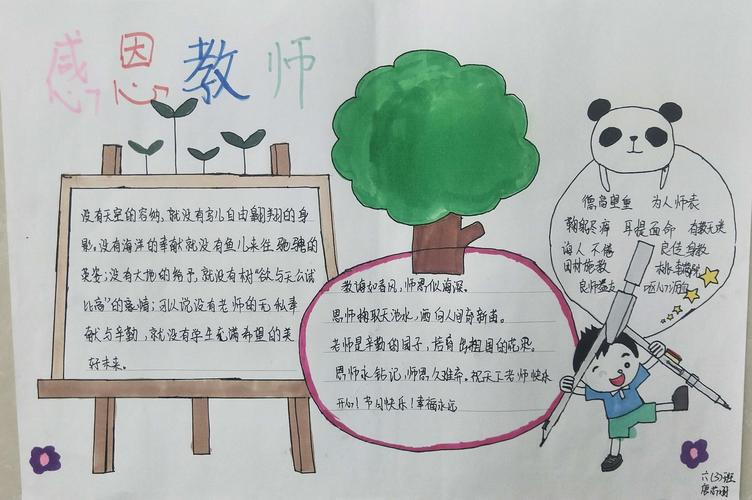 感恩教师
没有天空的容纳,就没有鸟儿自由翱翔的身
影;没有海洋的奉献就没有鱼儿来往驰骋的
英姿;没有大地的给予,就没有树“欲与天公试
比高”的豪情;可以说没有老师的无私奉
献与辛勤,就没有学生充满希望的美
好未来。
教诲如春风,师恩似海深。
思师物取天池水,洒向人间育新苗。
老师是辛勤的园丁,培育 祖国的花朵。
恩师永 记,师恩 ,祝天下老师快乐
开心!节日快乐!幸福永远
德高望重 为人师表
鞠躬尽瘁 耳提面命 有教无类
诲人不倦 良 身教
因材施教 桃李满院
良师益友
六(3)班